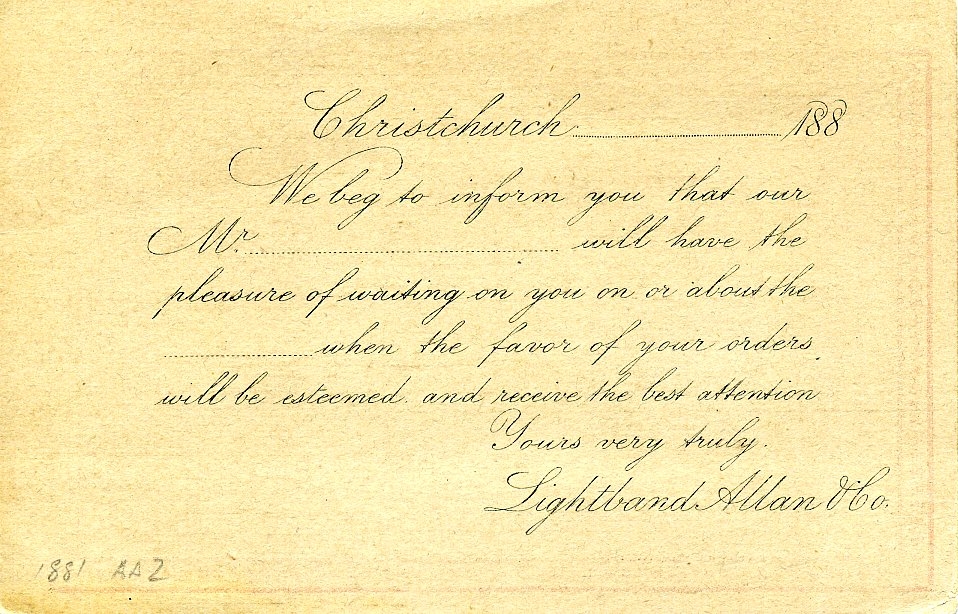 Christchurch 188
We beg to inform you that our
Mr. will have the
pleasure of waiting on you on or about the
when the favor of your orders
will be esteemed and receive the best attention
Yours very truly.
Lightband Allan & Co.
1881 AAZ